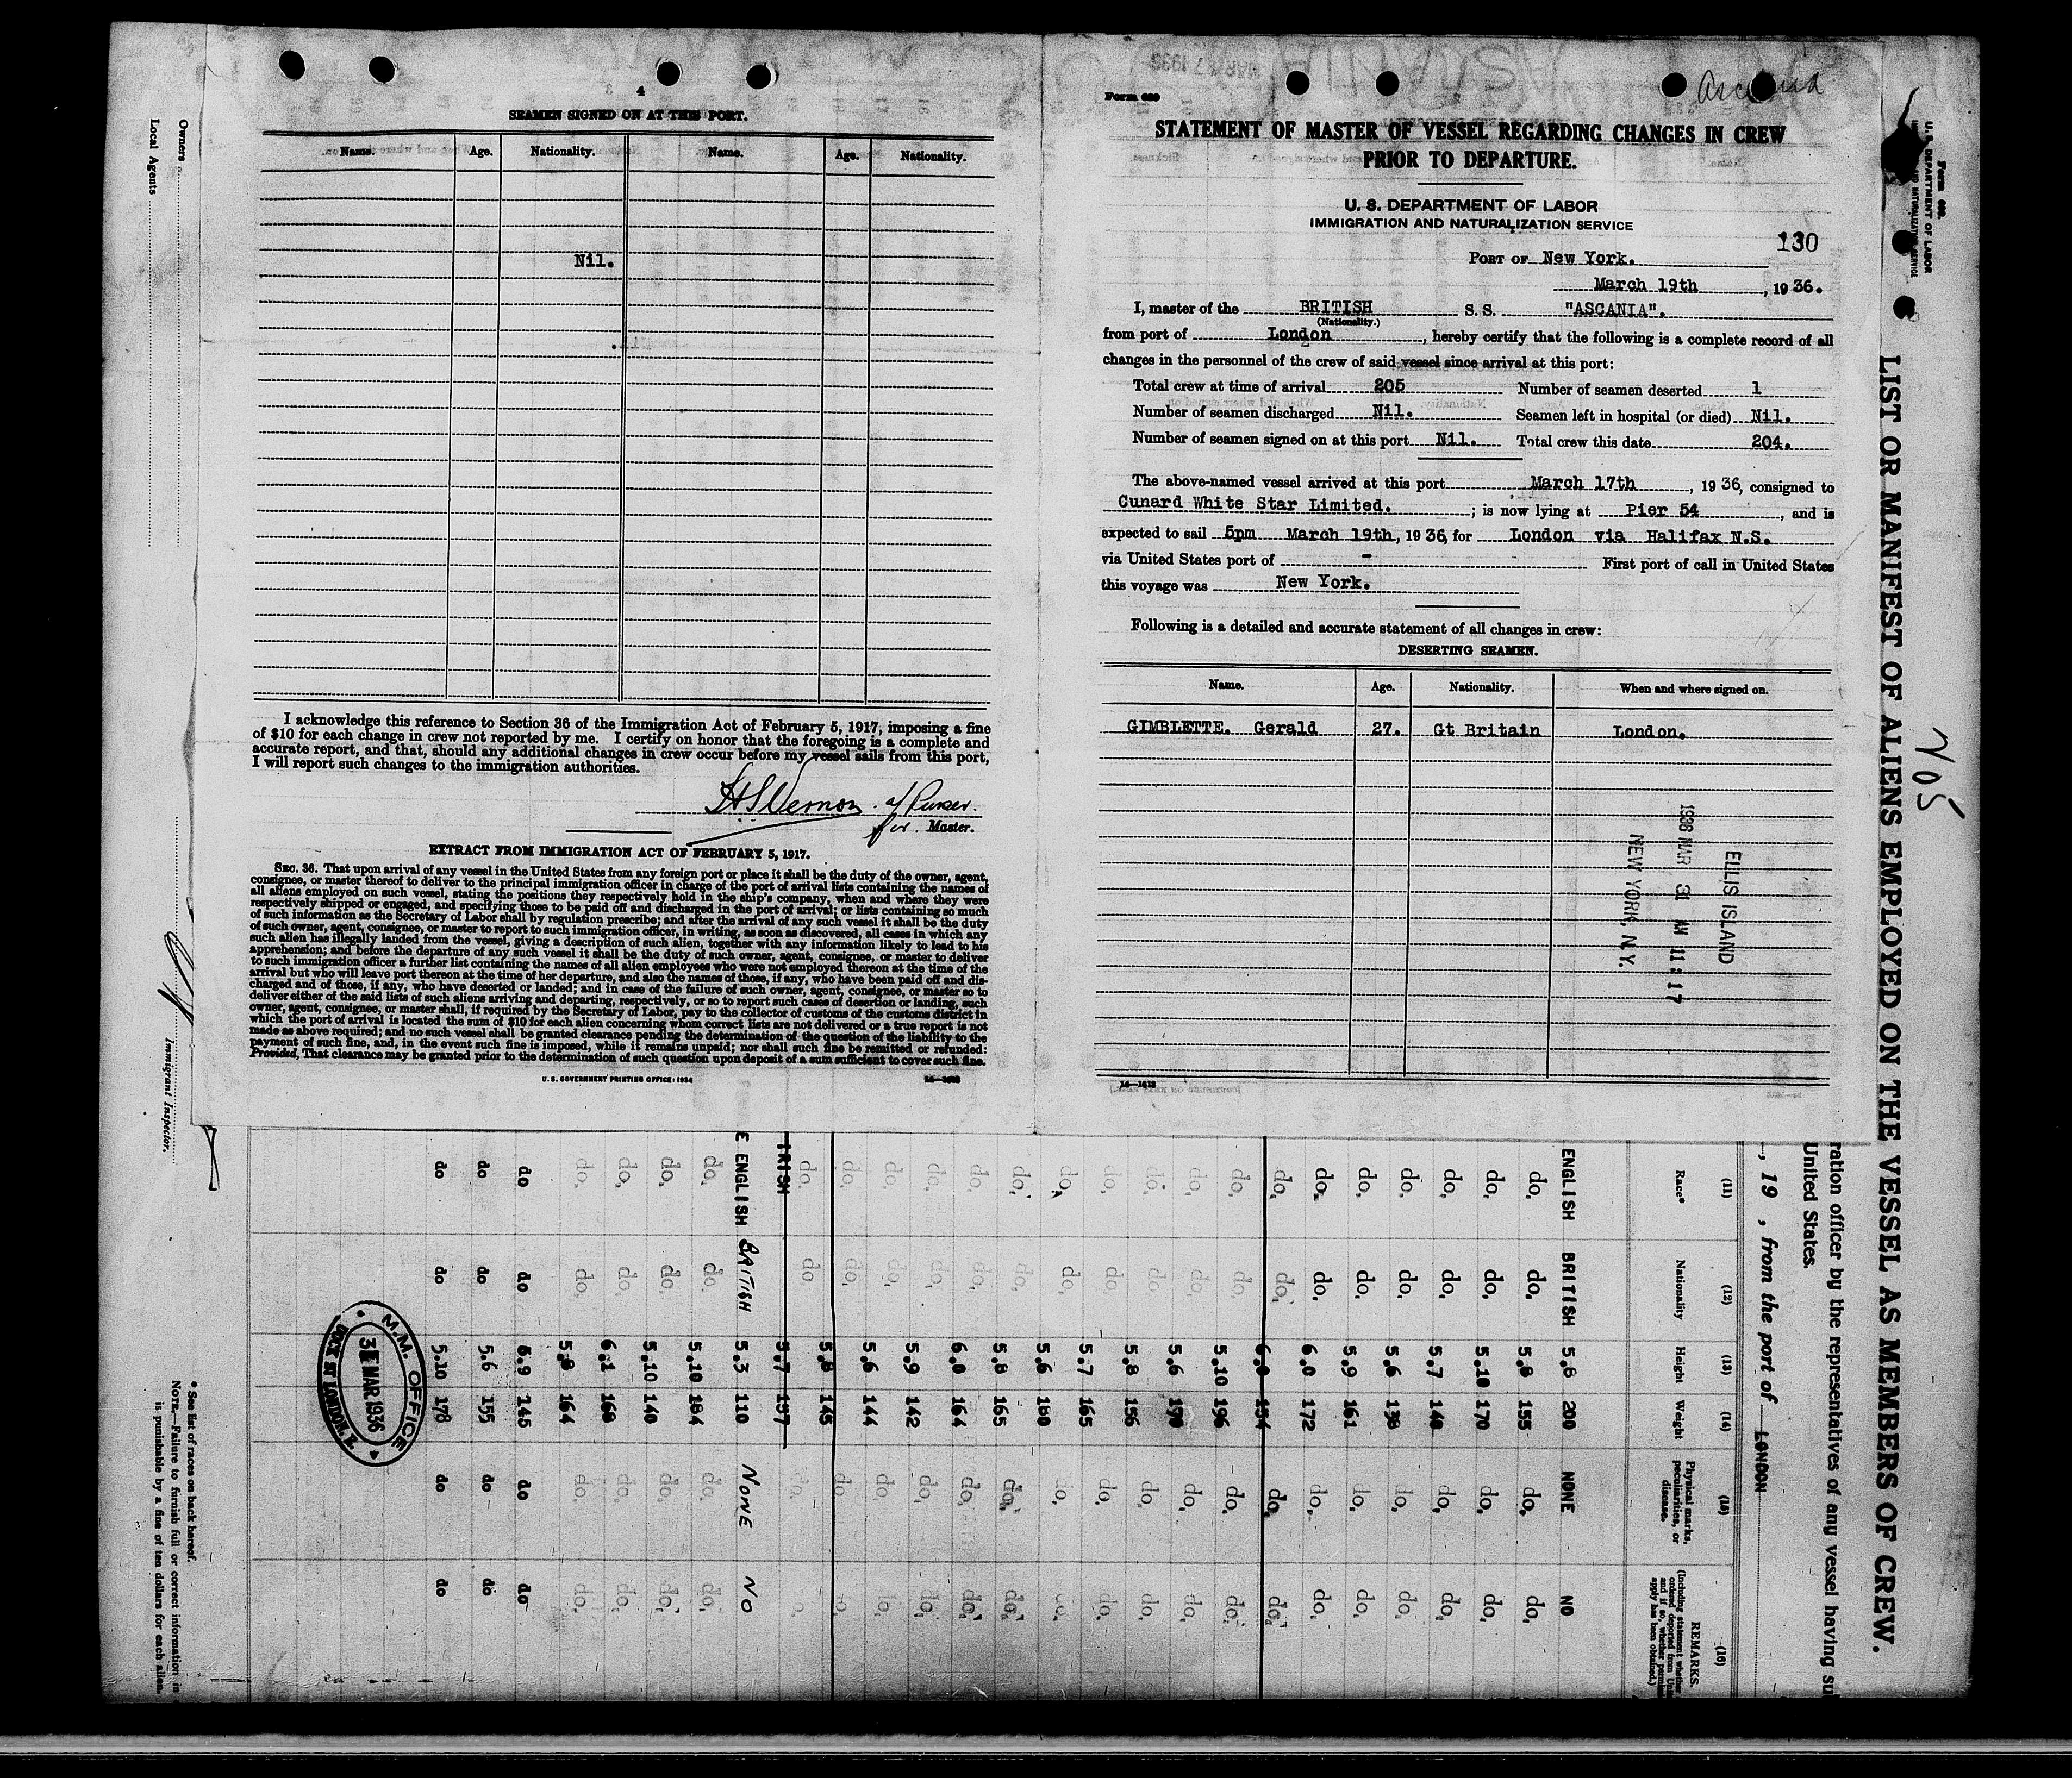 4
SEAMEN SIGNED ON AT THIS PORT.
Name. Age. Nationality. Name. Age. Nationality.
Nil.
I acknowledge this reference to Section 36 of the Immigration Act of February 5, 1917, imposing a fine
of $10 for each change in crew not reported by me. I certify on honor that the foregoing is a complete and
accurate report, and that, should any additional changes in crew occur before my vessel sails from this port,
I will report such changes to the immigration authorities.
HSVernon. a/ Purser.
for. Master.
EXTRACT FROM IMMIGRATION ACT OF FEBRUARY 5, 1917.
SEC. 36. That upon arrival of any vessel in the United States from any foreign port or place it shall be the duty of the owner, agent,
consignee, or master thereof to deliver to the principal immigration officer in charge of the port of arrival lists containing the names of
all aliens employed on such vessel, stating the positions they respectively hold in the ship's company, when and where they were
respectively shipped or engaged, and specifying those to be paid off and discharged in the port of arrival; or lists containing so much
of such information as the Secretary of Labor shall by regulation prescribe; and after the arrival of any such vessel it shall be the duty
of such owner, agent, consignee, or master to report to such immigration officer, in writing, as soon as discovered, all cases in which any
such alien has illegally landed from the vessel, giving a description of such alien, together with any information likely to lead to his
apprehension; and before the departure of any such vessel it shall be the duty of such owner, agent, consignee, or master to deliver
to such immigration officer a further list containing the names of all alien employees who were not employed thereon at the time of the
arrival but who will leave port thereon at the time of her departure, and also the names of those, if any, who have been paid off and dis-
charged and of those, if any, who have deserted or landed; and in case of the failure of such owner, agent, consignee, or master so to
deliver either of the said lists of such aliens arriving and departing, respectively, or so to report such cases of desertion or landing, such
owner, agent, consignee, or master shall, if required by the Secretary of Labor, pay to the collector of customs of the customs district in
which the port of arrival is located the sum of $10 for each alien concerning whom correct lists are not delivered or a true report is not
made as above required; and no such vessel shall be granted clearance pending the determination of the question of the liability to the
payment of such fine, and, in the event such fine is imposed, while it remains unpaid; nor shall such fine be remitted or refunded:
Provided, That clearance may be granted prior to the determination of such question upon deposit of a sum sufficient to cover such fine.
U. S. GOVERNMENT PRINTING OFFICE: 1934
Ascania
Form 689
STATEMENT OF MASTER OF VESSEL REGARDING CHANGES IN CREW
PRIOR TO DEPARTURE.
U. S. DEPARTMENT OF LABOR
IMMIGRATION AND NATURALIZATION SERVICE
130
PORT OF New York.
March 19th, 1936.
I, master of the BRITISH S. S. "ASCANIA".
(Nationality.)
from port of London, hereby certify that the following is a complete record of all
changes in the personnel of the crew of said vessel since arrival at this port:
Total crew at time of arrival 205 Number of seamen deserted 1
Number of seamen discharged Nil. Seamen left in hospital (or died) Nil.
Number of seamen signed on at this port Nil. Total crew this date 204.
The above-named vessel arrived at this port March 17th, 1936, consigned to
Cunard White Star Limited.; is now lying at Pier 54, and is
expected to sail 5pm March 19th, 1936, for London via Halifax N.S.
via United States port of - First port of call in United States
this voyage was New York.
Following is a detailed and accurate statement of all changes in crew:
DESERTING SEAMEN.
Name. Age. Nationality. When and where signed on.
GIMBLETTE. Gerald 27. Gt Britain London.
ELLIS ISLAND
1936 MAR 31 AM 11:17
NEW YORK, N.Y.
14—1613
Form 689.
U. S. DEPARTMENT OF LABOR
LIST OR MANIFEST OF ALIENS EMPLOYED ON THE VESSEL AS MEMBERS OF CREW.
ration officer by the representatives of any vessel having su
United States.
, 19 , from the port of LONDON
(11) (12) (13) (14) (15) (16)
Race* Nationality Height Weight Physical marks, peculiarities, or disease. REMARKS.
ENGLISH BRITISH 5.8 200 NONE NO
do. do. 5.8 155 do. do.
do. do. 5.10 170 do. do.
do. do. 5.7 140 do. do.
do. do. 5.6 139 do. do.
do. do. 5.9 161 do. do.
do. do. 6.0 172 do. do.
do. do. 6.0 154 do. do.
do. do. 5.10 196 do. do.
do. do. 5.6 190 do. do.
do. do. 5.8 156 do. do.
do. do. 5.7 165 do. do.
do. do. 5.6 180 do. do.
do. do. 5.8 165 do. do.
do. do. 6.0 164 do. do.
do. do. 5.9 142 do. do.
do. do. 5.6 144 do. do.
do. do. 5.8 145 do. do.
IRISH do 5.7 137 do. do.
ENGLISH BRITISH 5.3 110 NONE NO
do. do. 5.10 184 do. do.
do. do. 5.10 140 do. do.
do. do. 6.1 160 do. do.
do. do. 5.8 164 do. do.
do do 5.9 145 do do
do do 5.6 155 do do
do do 5.10 178 do do
M.M. OFFICE
3 MAR 1936
DOCK ST LONDON. E.
* See list of races on back hereof.
NOTE.—Failure to furnish full or correct information in
is punishable by a fine of ten dollars for each alien.
Owners
Local Agents
Immigrant Inspector.